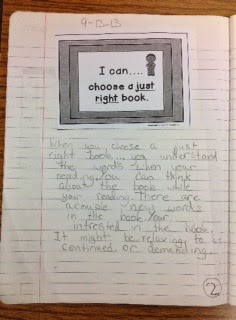 9-13-13
I can....
choose a just
right book.
When you choose a just
right book... you understand
the words when your
reading. You can think
about the book while
your reading. There are
a couple new words
in the book. Your
intrested in the book.
It might be relaxing to
continued or demanding.
2